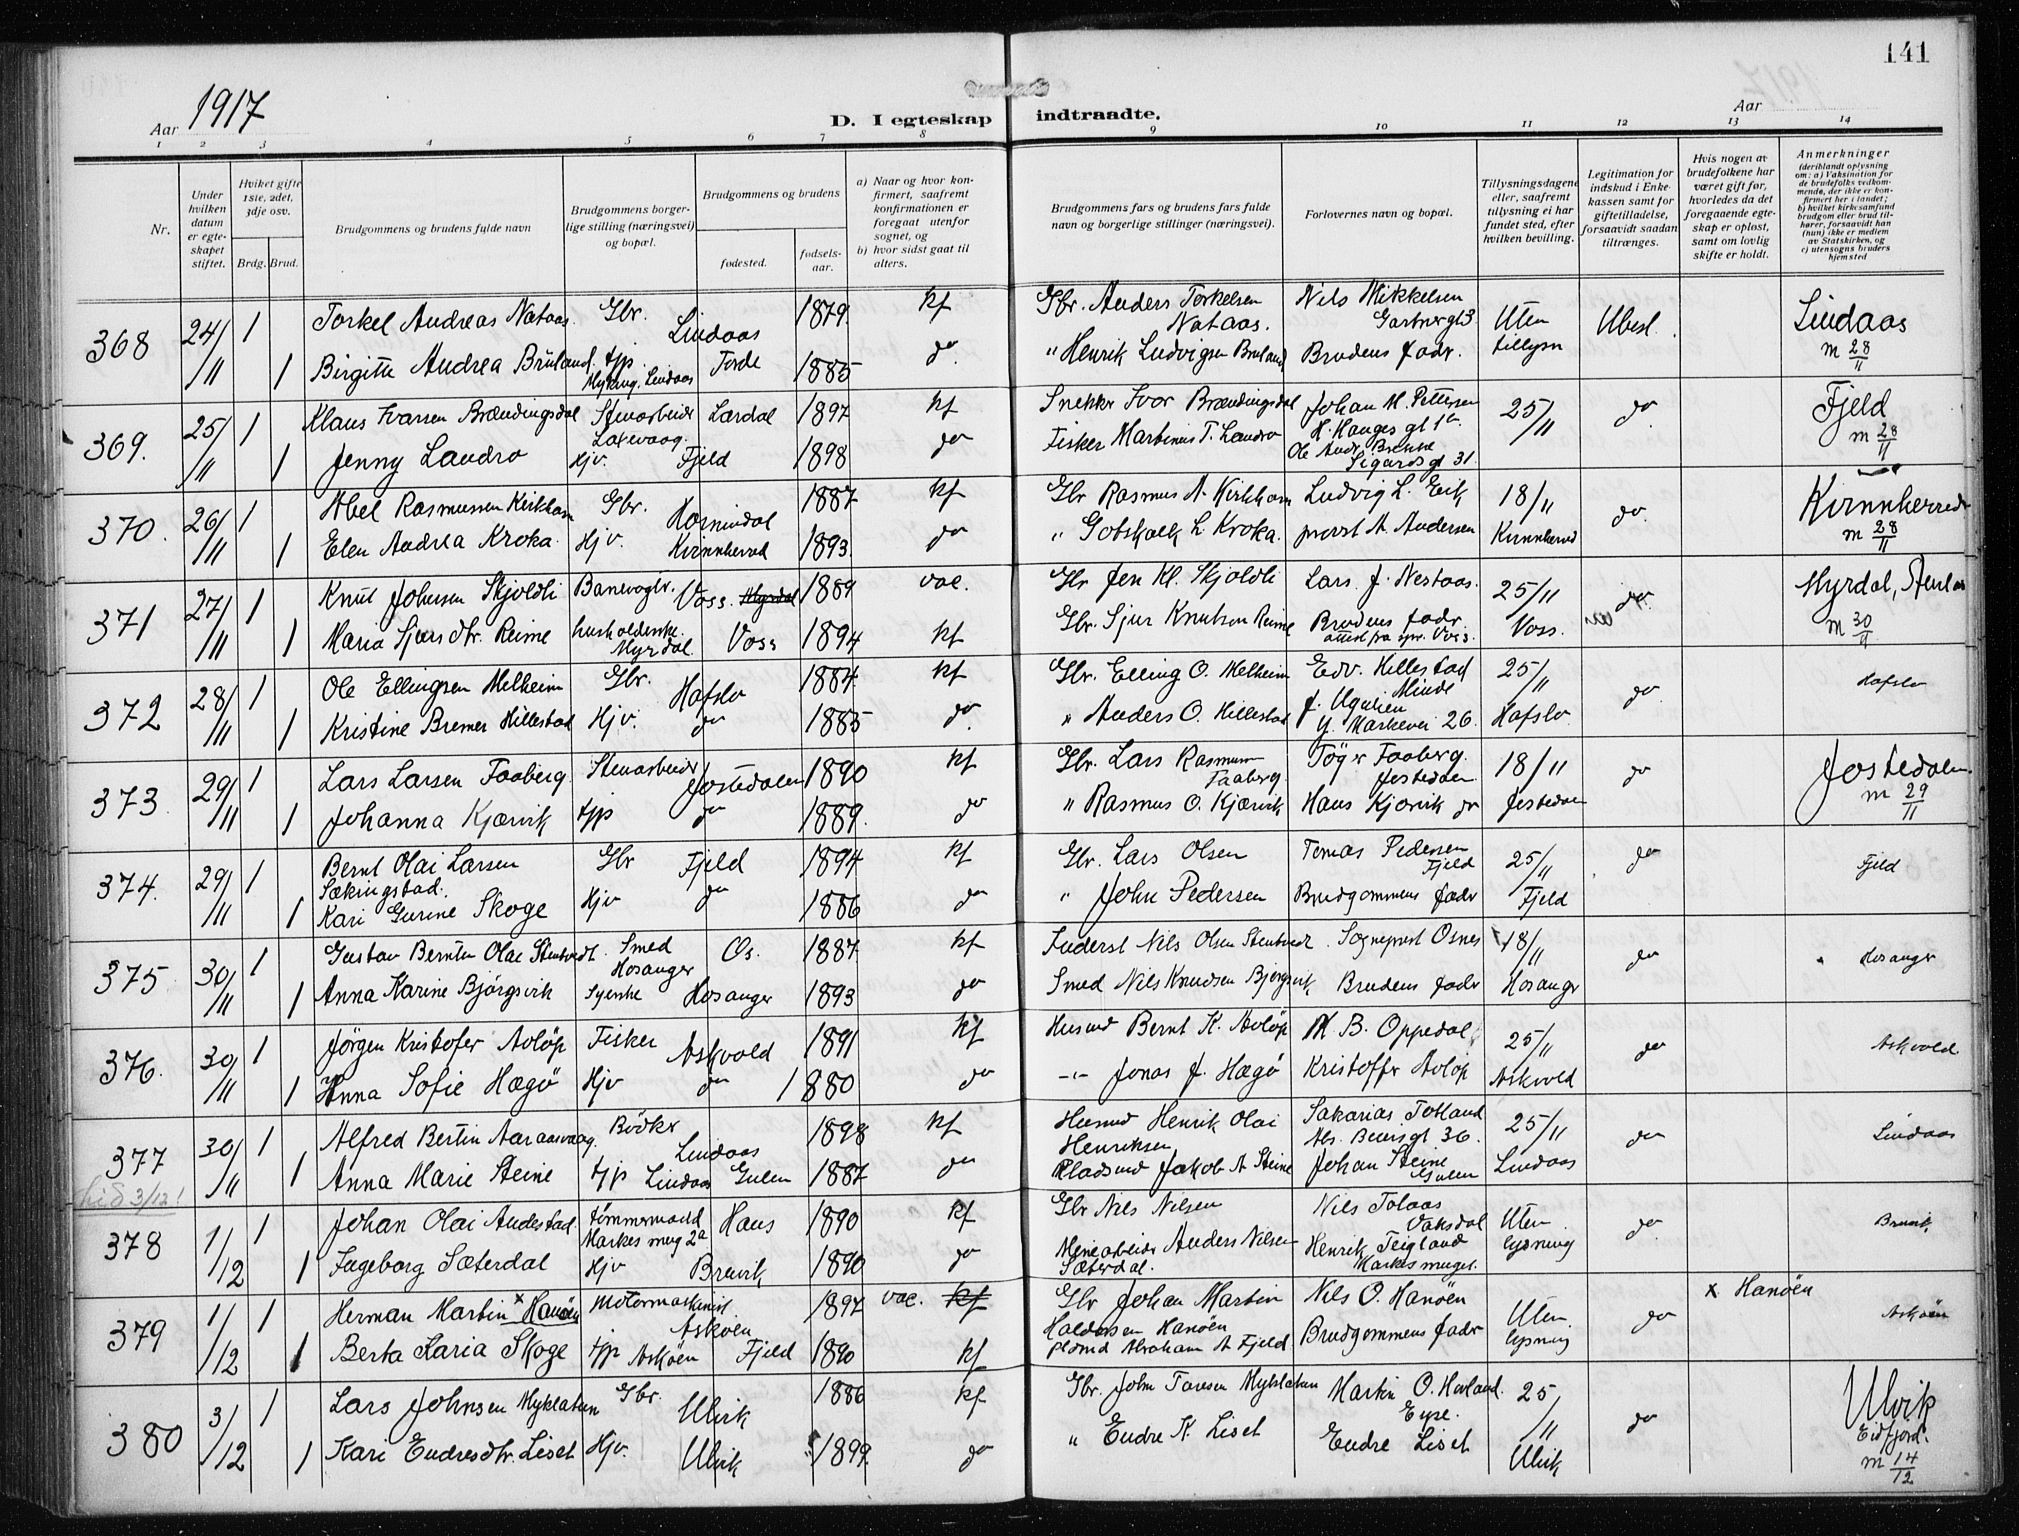 141
Aar 1917
Aar
D. I egteskap indtraadte.
1 2 3 4 5 6 7 8 9 10 11 12 13 14
Nr.
Under hvilken datum er egteskapet stiftet.
Hviket gifte 1ste, 2det, 3dje osv.
Brdg. Brud.
Brudgommens og brudens fulde navn
Brudgommens borgerlige stilling (næringsvei) og bopæl.
Brudgommens og brudens
fødested.
fødselsaar.
a) Naar og hvor konfirmert, saafremt konfirmationen er foregaat utenfor sognet, og
b) hvor sidst gaat til alters.
Brudgommens fars og brudens fars fulde navn og borgerlige stillinger (næringsvei).
Forlovernes navn og bopæl.
Tillysningsdagene eller, saafremt tillysning ei har fundet sted, efter hvilken bevilling.
Legitimation for indskud i Enkekassen samt for giftetilladelse, forsaavidt saadan tiltrænges.
Hvis nogen av brudefolkene har været gift før, hvorledes da det foregaaende egteskap er opløst, samt om lovlig skifte er holdt.
Anmerkninger (deriblandt oplysning om: a) Vaksination for de brudefolks vedkommende, der ikke er konfirmert her i landet; b) hvilket kirkesamfund brudgom eller brud tilhører, forsaavidt han (hun) ikke er medlem av Statskirken, og c) utensogns bruders hjemsted
368 24/11 1 Torkel Andreas Nataas Gbr. Lindaas 1879 kf Gbr. Anders Torkelsen Nataas. Nils Mikkelsen Uten tillysn Ubesl. Lindaas
1 Birgitte Andrea Bruland. tjp. Lindaas Førde 1885 do. " Henrik Ludvigsen Bruland Brudens fader. m 28/11
369. 25/11 1 Klaus Ivarsen Brændingsdal Stenarbeider Laxevaag Lærdal 1897 kf Snekker Ivar Brændingsdal Johan M. Pettersen H. Hauges gt 25/11 do Fjeld
1 Jenny Landro Hjv. Fjeld 1898 do Fisker Martinus T. Landro Ole Andr. Brekke Sigurds gt 31. m 28/11
370. 26/11 1 Abel Rasmussen Kirkhorn Gbr. Hornindal 1887 kf Gbr Rasmus A. Kirkhorn Ludvig L. Eik 18/11 do. Kvinnherred
1 Elen Andrea Kroka. Hjv. Kvinnherred 1893 do " Gotskalk L. Kroka. provst A Andersen Kvinnherred m 28/11
371 27/11 1 Knut Johnsen Skjoldli Banevogtr. Voss. 1889 vac. Gbr Jon Kl. Skjoldli Lars J. Nestaas. 25/11 do. Myrdal,
1 Maria Sjursdtr. Reime husholderske Myrdal Voss 1894 kf Gbr. Sjur Knutson Reime Brudens fader attest fra spr. Voss. Voss. m 30/11
372 28/11 1 Ole Ellingsen Melheim Gbr. Hafslo 1884. kf Gbr. Elling O. Melheim Edv. Hillestad Minde 25/11 do Hafslo
1 Kristine Bremer Hillestad Hjv. do 1885 do. " Anders O. Hillestad 26. Hafslo
373. 29/11 1 Lars Larsen Faaberg Stenarbeider Jostedalen 1890 kf Gbr. Lars Rasmussen Faaberg Tøger Faaberg. Jostedalen 18/11 do Jostedalen.
1 Johanna Kjærvik tjp do 1889. do " Rasmus O. Kjærvik Hans Kjærvik do Jostedalen m 29/11
374. 29/11 1 Bernt Olai Larsen Sækingstad. Gbr Fjeld 1894 kf Gbr. Lars Olsen Tomas Pedersen Fjeld 25/11 do Fjeld
1 Kari Gurine Skoge Hjv do 1886 do " John Pedersen Brudgommens fader Fjeld
375. 30/11 1 Gustav Berntin Olai Stentvedt. Smed Hosanger Os. 1887 kf Inderst Nils Olsen Stentvedt. Sogneprest Osnes 18/11 do Hosanger
1 Anna Karine Bjørgsvik Syerske Hosanger 1893 do Smed Nils Knudsen Bjørgsvik Brudens fader Hosanger
376. 30/11 1 Jørgen Kristofer Avløp Fisker Askvold 1891 kf Husmd Bernt K. Avløp M. B. Oppedal 25/11 do Askvold
1 Anna Sofie Hægø Hjv do 1880 do -"- Jonas J. Hægø Kristoffer Avløp Askvold
377 30/11 1 Alfred Bertin Aaraasvaag. Bødker Lindaas 1898 kf Husmd Henrik Olai Henriksen Sakarias Totland 36. 25/11 do Lindaas
1 Anna Marie Steine tjp Lindaas Gulen 1887 do Pladsmd Jakob A Steine Johan Steine Gulen Lindaas
378 1/12 1 Johan Olai Andestad. tømmermand Markesmug 2a Haus 1890 kf Gbr Nils Nilsen Nils Tolaas Vaksdal Uten lysning do. Bruvik
1 Ingeborg Sæterdal Hjv Bruvik 1890 do Minearbeider Anders Nilsen Sæterdal. Henrik Teigland Markesmuget.
379 1/12 1 Herman Martin x Hanøen Motormaskinist Askøen 1897 vac. kf Gbr Johan Martin Haldorsen Hanøen Nils O. Hanøen Uten lysning do x Hanøen Askøen
1 Berta Karia Skoge tjp Askøen Fjeld 1890 kf Plsmd Abraham A Fjeld Brudgommens fader
380 3/12 1 Lars Johnsen Myklatun Gbr. Ulvik 1886 kf Gbr. John Toresen Myklatun Martin O. Havland. 25/11 do Ulvik Eidfjord.
1 Kari Endresdtr. Liset Hjv. Ulvik 1899. do " Endre K. Liset Endre Liset Ulvik m 14/12